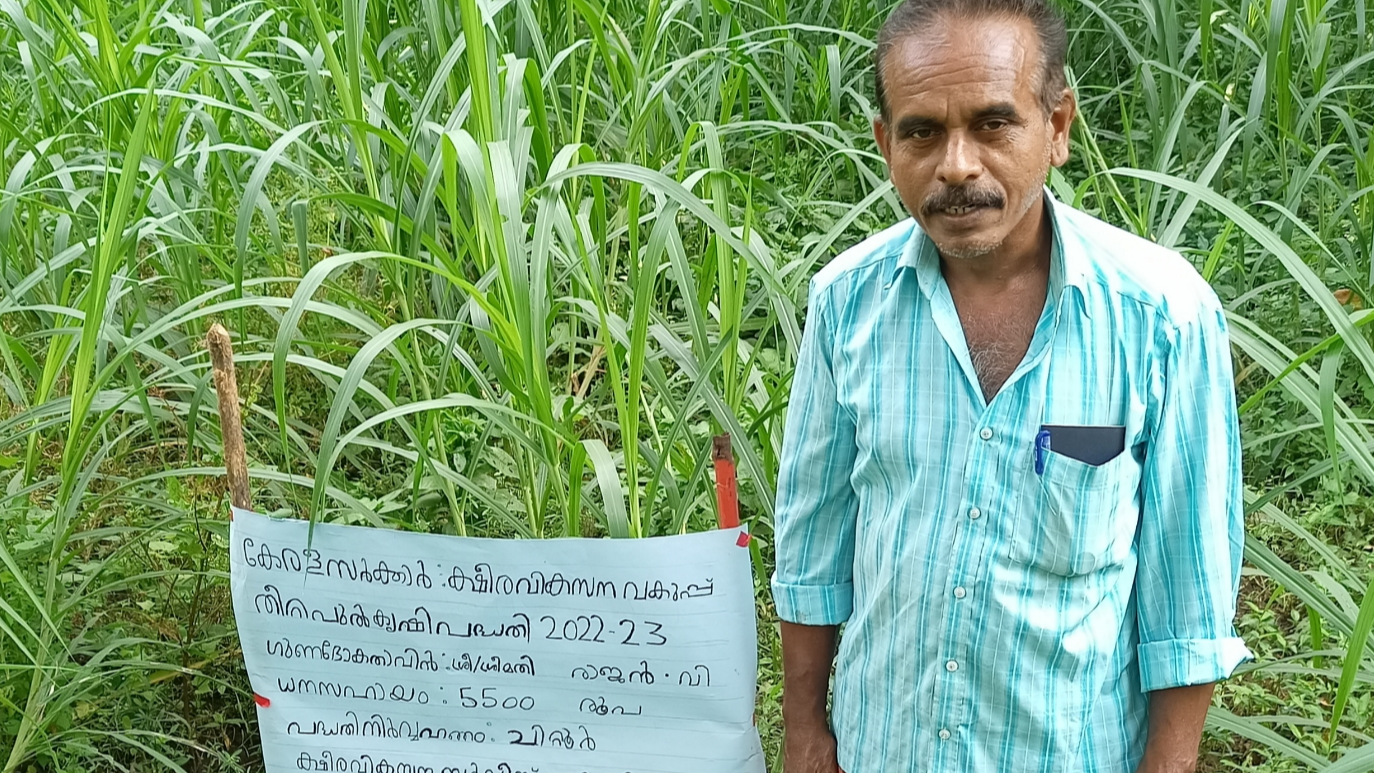 കേരളസർക്കാർ : ക്ഷീരവികസന വകുപ്പ്
തീറ്റപുൽകൃഷി പദ്ധതി 2022-23
ഗുണഭോക്താവിൻ : ശ്രീ/ശ്രീമതി രാജൻ . വി
ധനസഹായം : 5500 രൂപ
പദ്ധതിനിർവ്വഹണം : ചിറ്റൂർ
ക്ഷീരവികസന